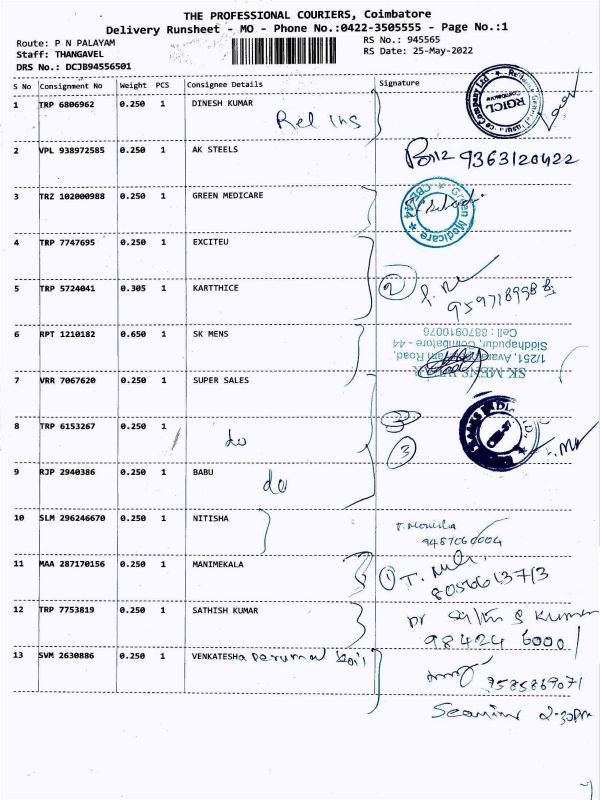 THE PROFESSIONAL COURIERS, Coimbatore
Delivery Runsheet - MO - Phone No.:0422-3505555 - Page No.:1
Route: P N PALAYAM RS No.: 945565
Staff: THANGAVEL RS Date: 25-May-2022
DRS No.: DCJB94556501
S No Consignment No Weight PCS Consignee Details Signature
1 TRP 6806962 0.250 1 DINESH KUMAR
Rel Ins
RGICL
2 VPL 938972585 0.250 1 AK STEELS
9363120422
3 TRZ 102000988 0.250 1 GREEN MEDICARE
Green Medicare * CBE-44 *
4 TRP 7747695 0.250 1 EXCITEU
5 TRP 5724041 0.305 1 KARTTHICE
2
6 RPT 1210182 0.650 1 SK MENS
SK MENS WEAR
Siddhapudur, Coimbatore - 44
Cell : 8870910076
7 VRR 7067620 0.250 1 SUPER SALES
8 TRP 6153267 0.250 1
do
3
9 RJP 2940386 0.250 1 BABU
do
10 SLM 296246670 0.250 1 NITISHA
T. Monisha
9487060004
11 MAA 287170156 0.250 1 MANIMEKALA
1
12 TRP 7753819 0.250 1 SATHISH KUMAR
98424 60001
13 SVM 2630886 0.250 1 VENKATESHa perumal koil
9585869071
2.30pm